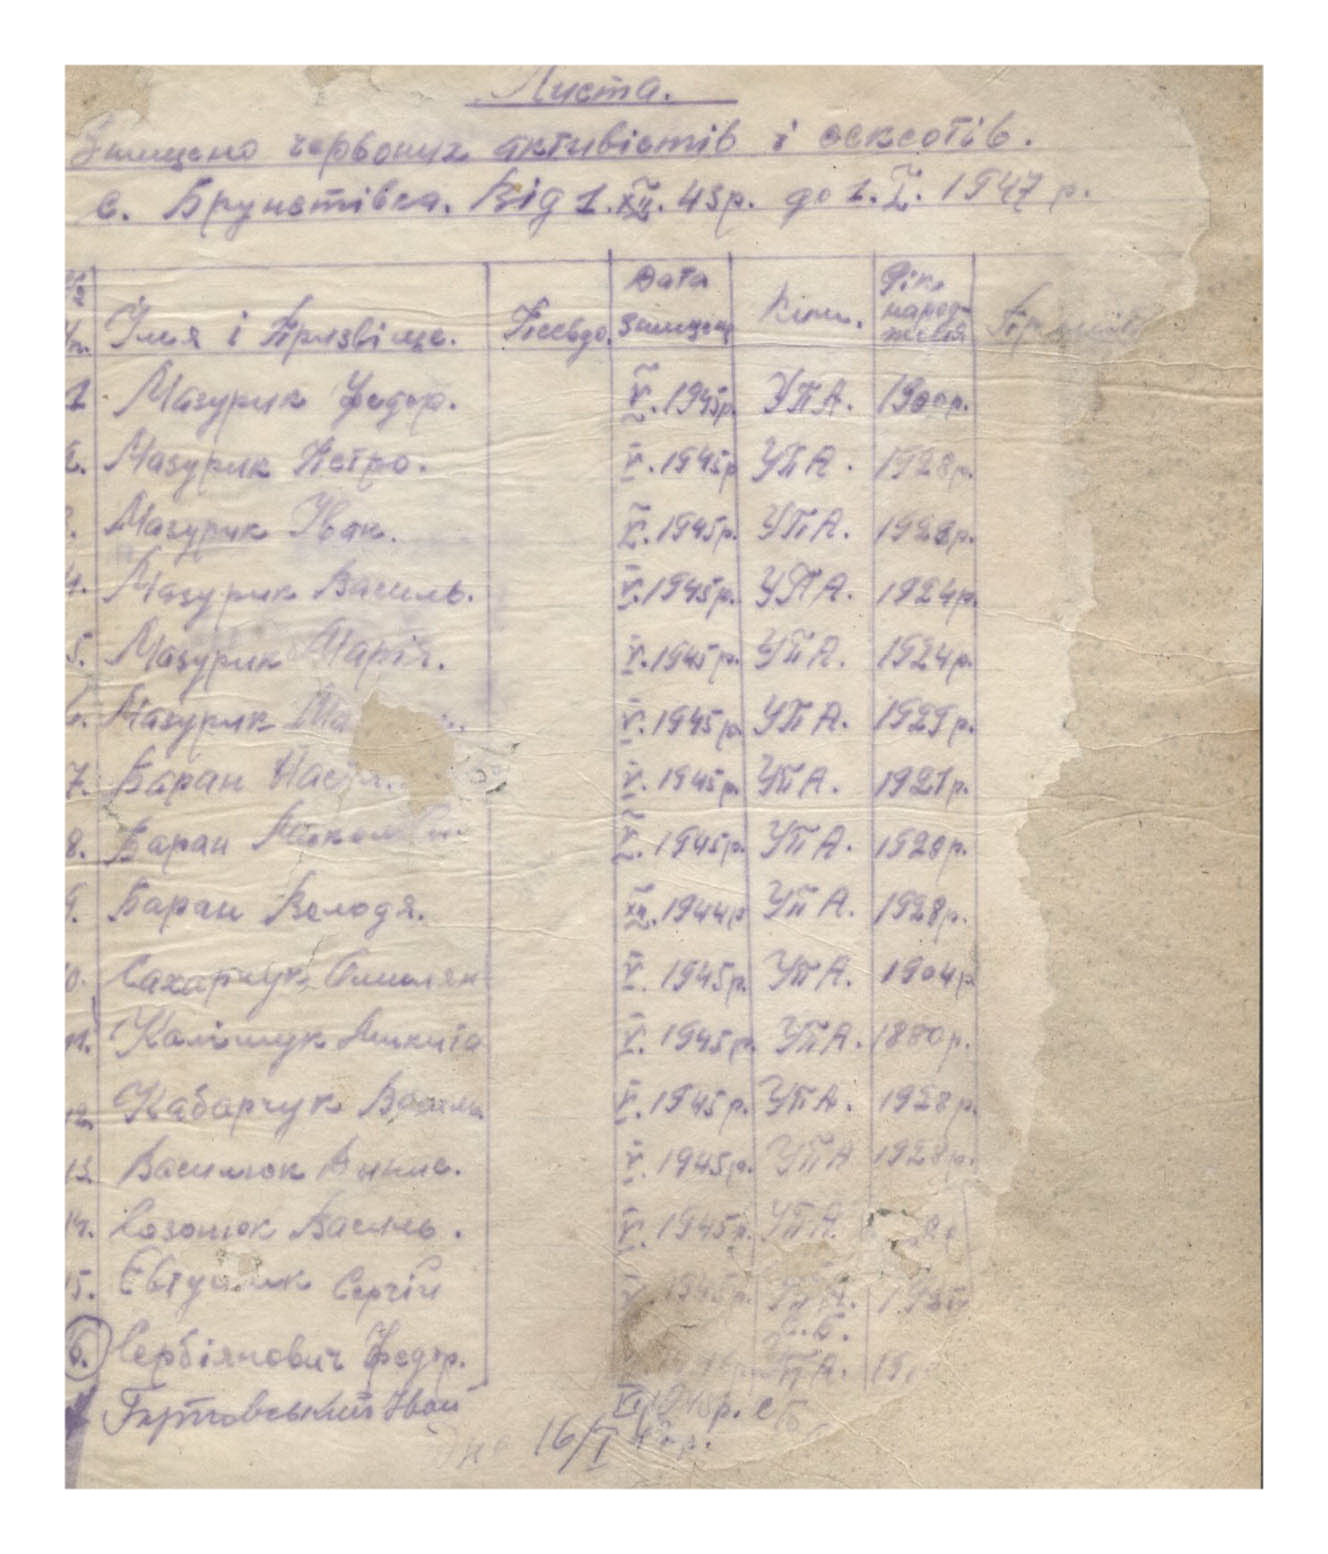 Листа.
Знищено червоних активістів і сексотів.
с. Брунетівка. Від 1.XII.43р. до 1.I.1947р.
Імя і Призвіще. Псевдо. Дата знищень Ким. Рік народження
1. Мазурик Федор. V.1945р. УПА. 1900р.
2. Мазурик Петро. V.1945р УПА. 1928р.
Мазурик Іван. V.1945р. УПА. 1928р.
4. Мазурик Василь. V.1945р. УПА. 1924р.
5. Мазурик Марія. V.1945р. УПА. 1924р.
Мазурик V.1945р. УПА. 1929р.
7. Баран Настя. V.1945р. УПА. 1921р.
8. Баран V.1945р. УПА. 1920р.
9. Баран Володя. XII.1944р УПА. 1928р.
Сахарчук Омилян V.1945р. УПА. 1904р
11. Калішук Микита V.1945р. УПА. 1880р.
12. Кабарчук V.1945р. УПА. 1928р.
13. Василюк V.1945р. УПА 1928р.
14. Созонюк Василь. V.1945р. УПА.
15. Сергій 1945р. УПА.
С.Б.
Сербіянович Федор. УПА.
Іван
16/I